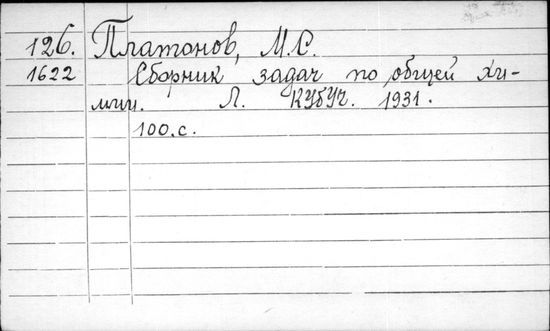 126. Платонов, М.С.
1622 Сборник задач по общей хи-
мии. Л. КУБУЧ. 1931.
100.с.